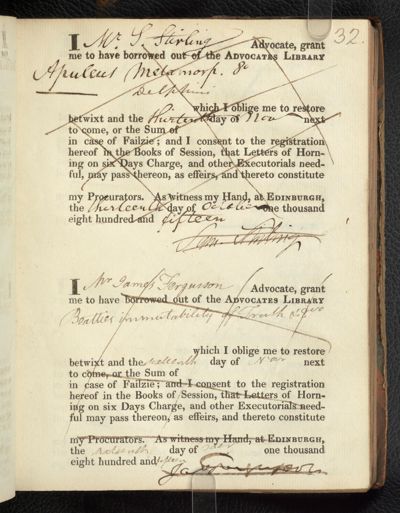 32.
I Mr S. Stirling Advocate, grant
me to have borrowed out of the ADVOCATES LIBRARY
Apuleus (Metamorp. 8o
Delphini
which I oblige me to restore
betwixt and the thirteenth day of Nov next
to come, or the Sum of
in case of Failzie; and I consent to the registration
hereof in the Books of Session, that Letters of Horn-
ing on six Days Charge, and other Executorials need-
ful, may pass thereon, as effeirs, and thereto constitute
my Procurators. As witness my Hand, at EDINBURGH,
the thirteenth day of October one thousand
eight hundred and fifteen
Stirling
I Mr James Fergusson Advocate, grant
me to have borrowed out of the ADVOCATES LIBRARY
Beatties immutability of Truth
which I oblige me to restore
betwixt and the day of Nov next
to come, or the Sum of
in case of Failzie; and I consent to the registration
hereof in the Books of Session, that Letters of Horn-
ing on six Days Charge, and other Executorials need-
ful may pass thereon, as effeirs, and thereto constitute
my Procurators. As witness my Hand, at EDINBURGH,
the day of one thousand
eight hundred and fifteen
Ja Fergusson